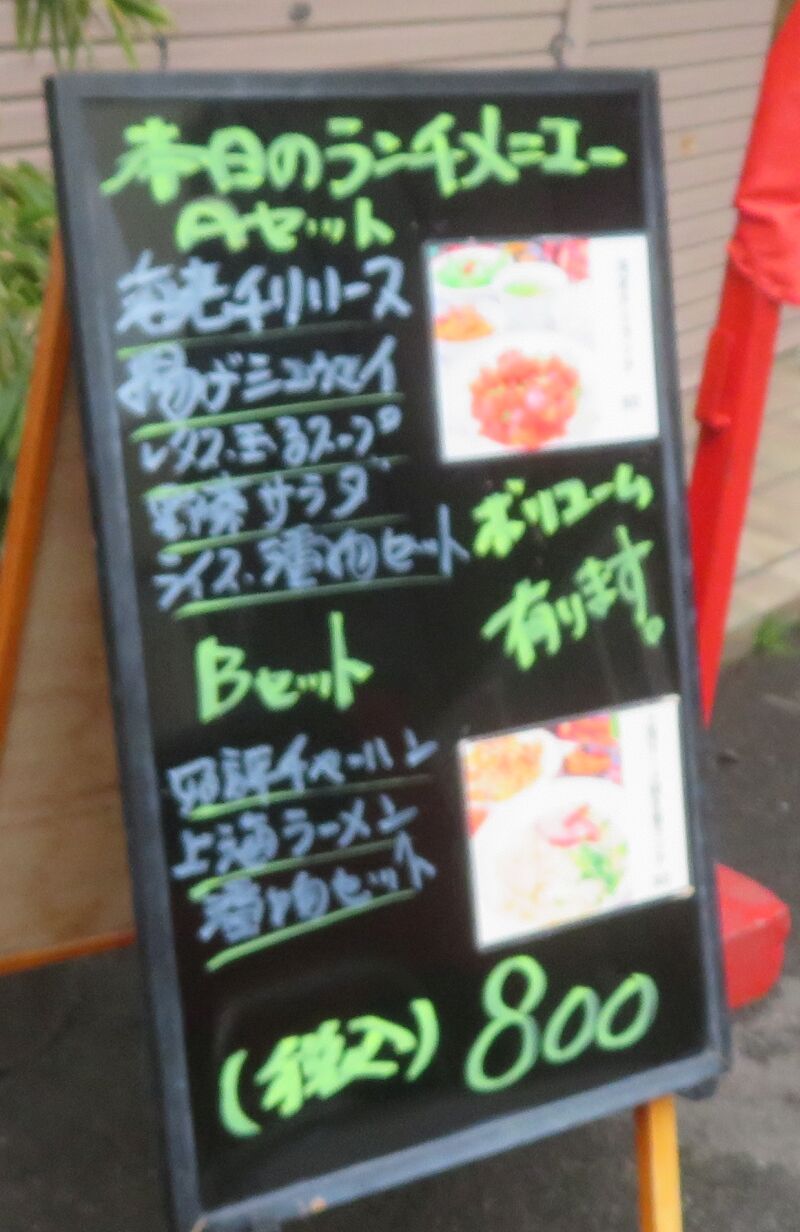 本日のランチメニュー
Aセット
海老チリソース
揚げシュウマイ
レタス、玉子スープ
野菜サラダ
ライス、漬物セット
ボリューム
有ります。
Bセット
チャーハン
上海ラーメン
漬物セット
(税込) 800